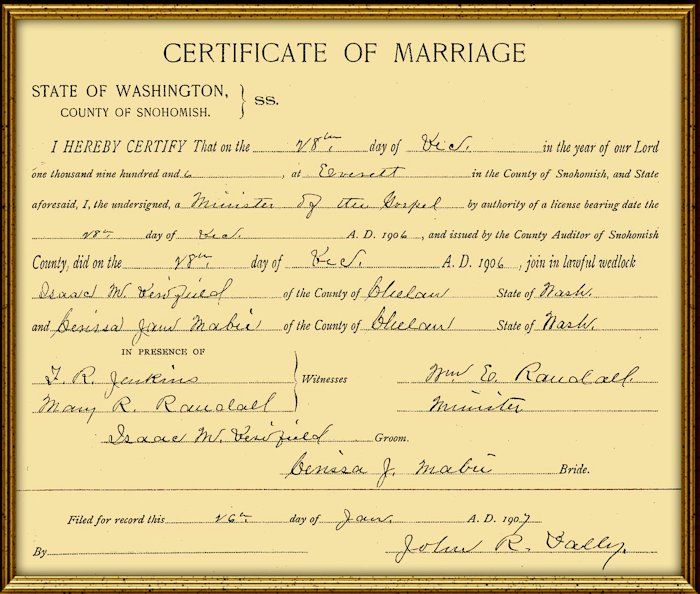 CERTIFICATE OF MARRIAGE
STATE OF WASHINGTON,
COUNTY OF SNOHOMISH. } SS.
I HEREBY CERTIFY That on the 28th day of Dec. in the year of our Lord
one thousand nine hundred and 6, at Everett in the County of Snohomish, and State
aforesaid, I, the undersigned, a Minister of the Gospel by authority of a license bearing date the
28th day of Dec. A. D. 1906, and issued by the County Auditor of Snohomish
County, did on the 28th day of Dec. A. D. 1906, join in lawful wedlock
Isaac M. of the County of Chelan State of Wash.
and Jane of the County of Chelan State of Wash.
IN PRESENCE OF
F. R. Jenkins
Mary R. Randall } Witnesses
Wm E. Randall
Minister
Isaac M. Groom.
J. Bride.
Filed for record this 26th day of Jan. A. D. 1907
By John R.